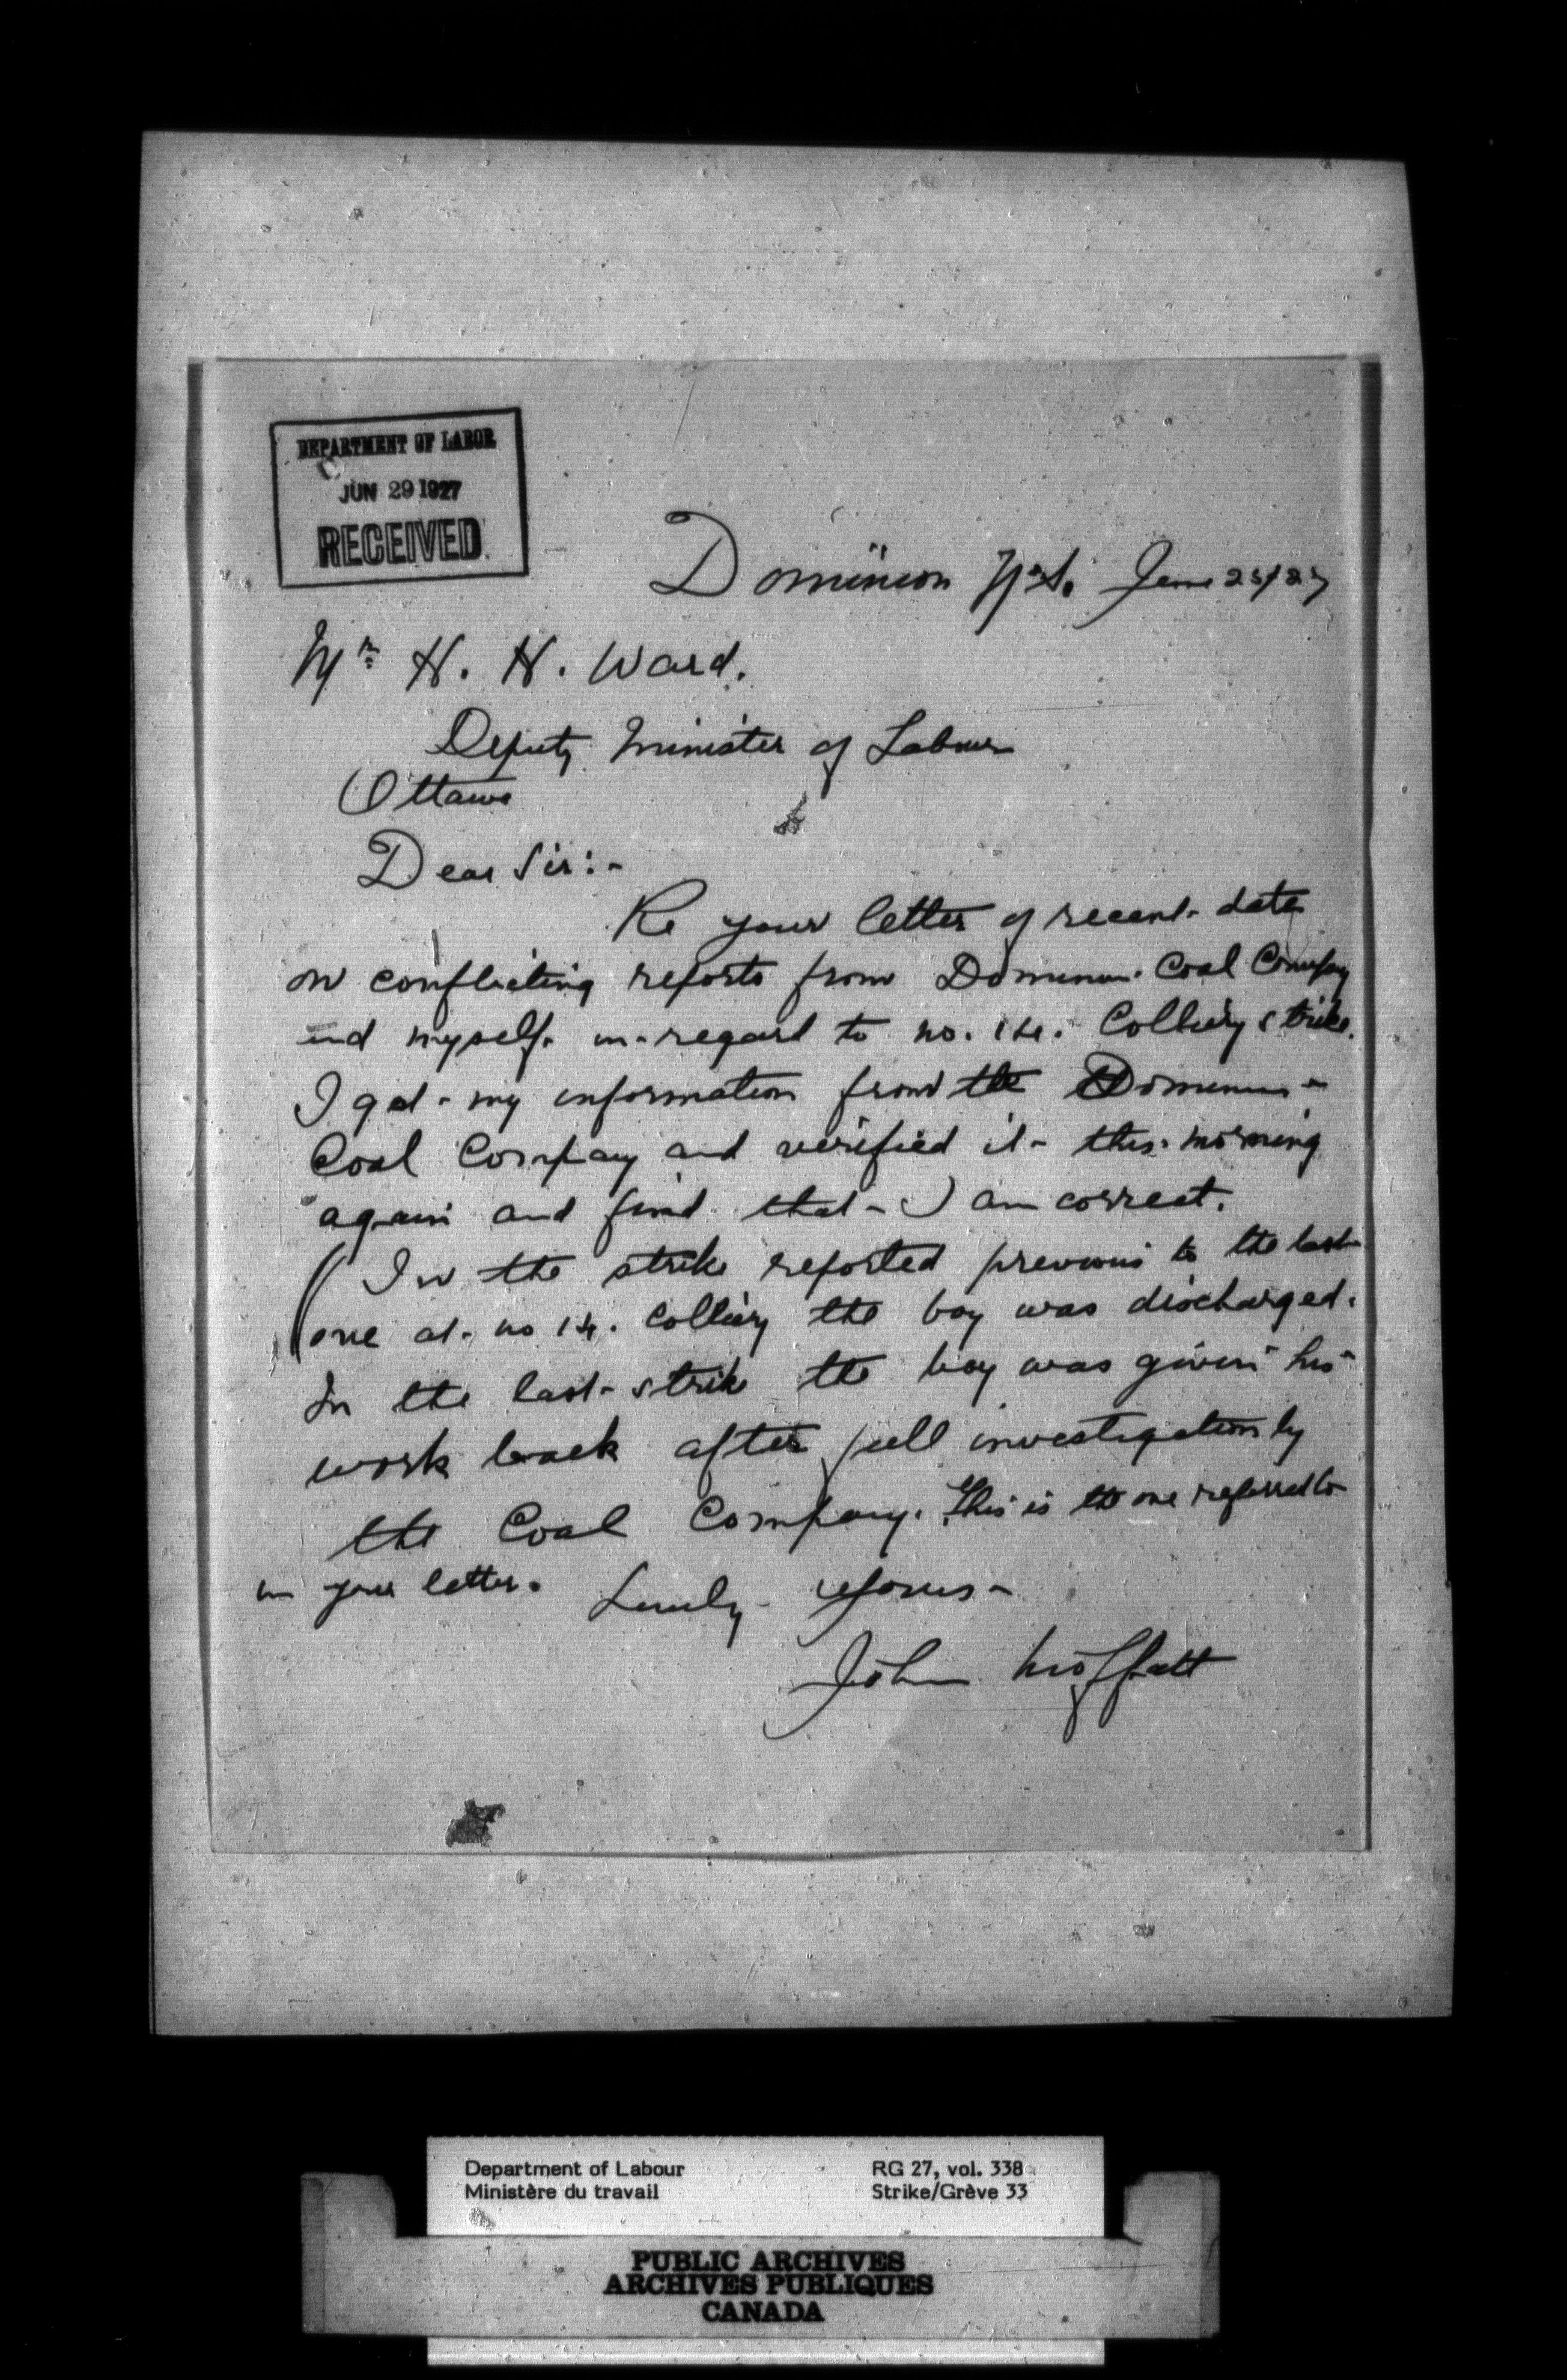 DEPARTMENT OF LABOR
JUN 29 1927
RECEIVED
Dominion N.S. June 25/27
Mr. H. H. Ward.
Deputy Minister of Labour
Ottawa
Dear Sir:-
Re your letter of recent date
on conflicting reports from Dominion Coal Company
and myself in regard to no. 14. Colliery strike.
I got my information from the Dominion
Coal Company and verified it this morning
again and find that I am correct.
( In the strike reported previous to the last
one at no 14. Colliery the boy was discharged.
In the last strike the boy was given his
work back after full investigation by
the Coal Company. This is the one referred to
in your letter.
yours
John Moffatt
Department of Labour
Ministère du travail
RG 27, vol. 338
Strike/Grève 33
PUBLIC ARCHIVES
ARCHIVES PUBLIQUES
CANADA